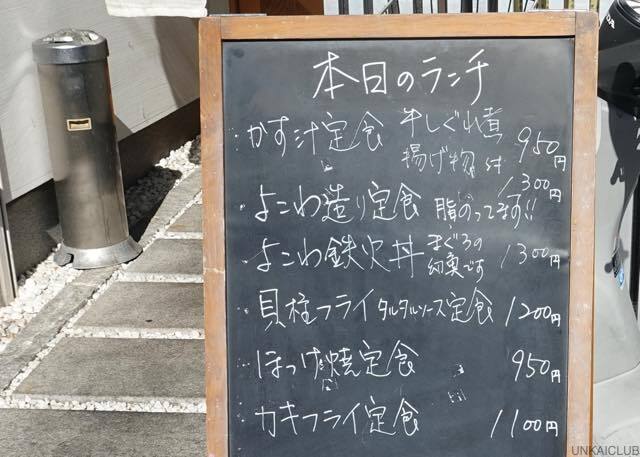 本日のランチ
・かす汁定食 牛しぐれ煮 揚げ物 950円
・よこわ造り定食 脂のってます!! 1300円
・よこわ鉄火丼 まぐろの幼魚です 1300円
・貝柱フライタルタルソース定食 1200円
・ほっけ焼定食 950円
カキフライ定食 1100円
UNKAICLUB